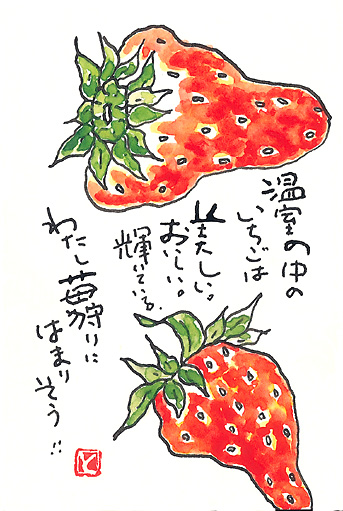 温室の中の
いちごは
美しい。
おいしい。
輝いている。
わたし苺狩りに
はまり
そう!!
と